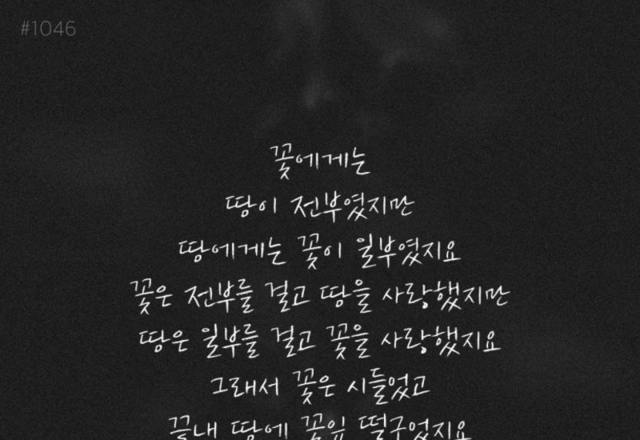 #1046
꽃에게는
땅이 전부였지만
땅에게는 꽃이 일부였지요
꽃은 전부를 걸고 땅을 사랑했지만
땅은 일부를 걸고 꽃을 사랑했지요
그래서 꽃은 시들었고
끝내 땅에 꽃잎 떨구었지요